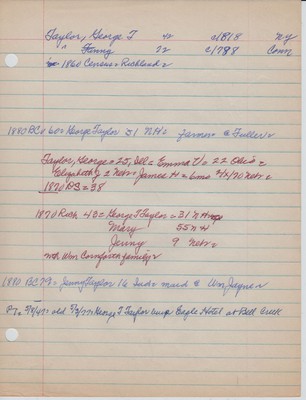 Taylor, George T 42 c/1818 NY
" Fanny 72 c/1788 Conn
in 1860 Census Richland
1880 BC 60 = George Taylor 31 NH farmer & Fuller
Taylor, George = 25, Ill = Emma V = 22 Ohio =
Elizabeth 2 Nebr = James H = 6mo 2/1870 Nebr =
1870 PS = 38
1870 Rich 43 = George T Taylor = 31 NH
Mary 55 NH
Jenny 9 Nebr =
with Wm Cornforth family
1880 BC 79 = Jenny Taylor 16 Ind maid @ Wm Jayne
George T Taylor Eagle Hotel at Bell Creek